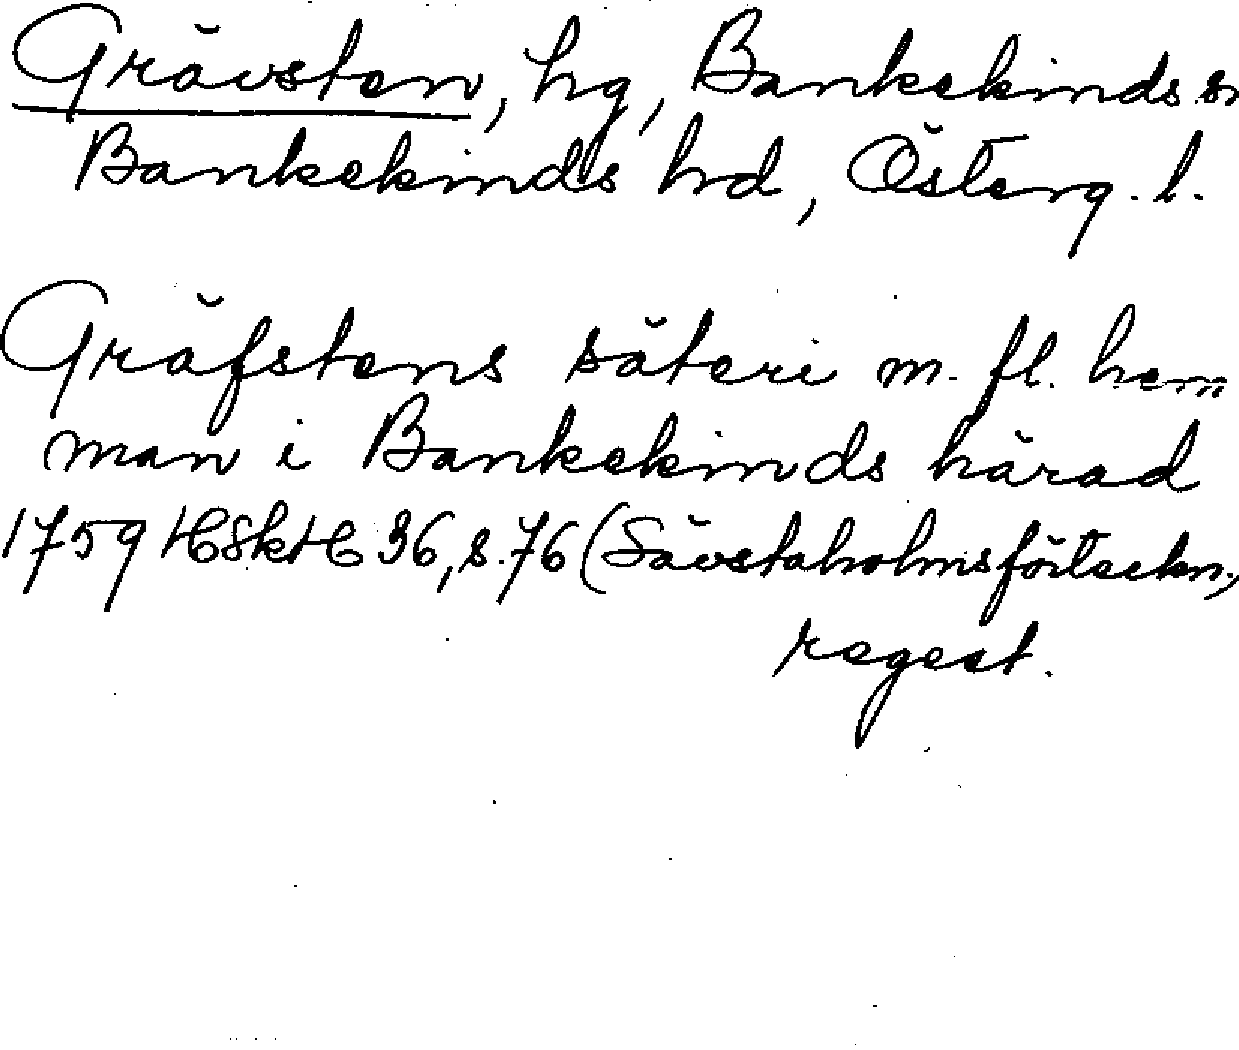 Grävsten, hg, Bankekinds sn
Bankekinds hd, Österg. l.
Gräfstens säteri m. fl. hem
man i Bankekinds härad
1759 HSkH 36, s. 76 (Sävstaholmsförteckn.,
regest.